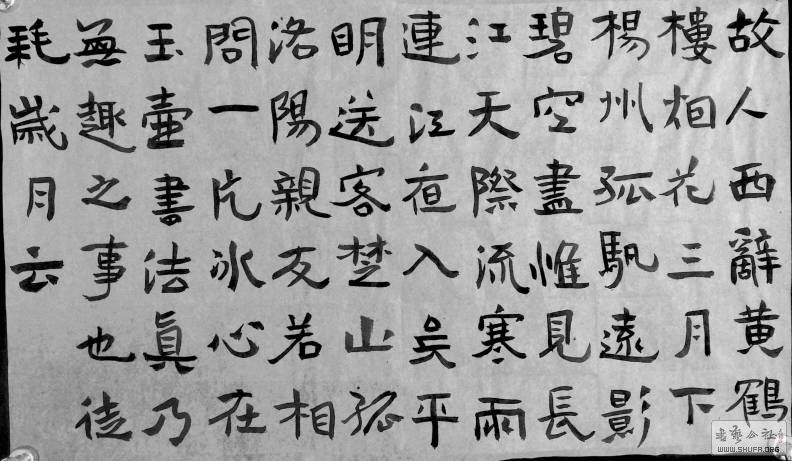 故人西辭黃鶴
樓烟花三月下
楊州孤帆遠影
碧空盡惟見長
江天際流寒雨
連江夜入吳平
明送客楚山孤
洛陽親友若相
問一片冰心在
玉壺書法真乃
無趣之事也徒
耗歲月云
书艺公社
WWW.SHUFA.ORG